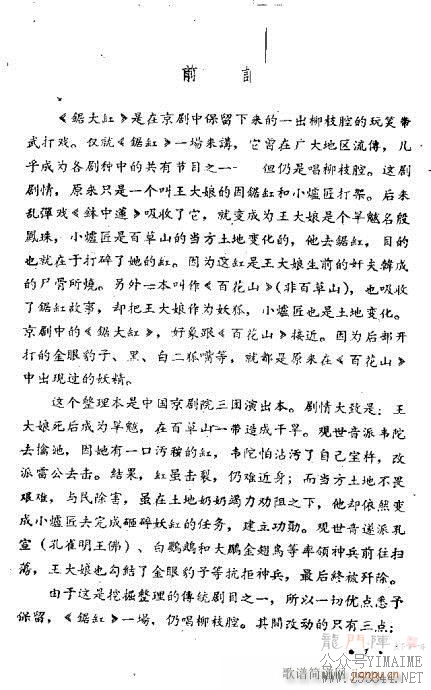 前 言
《鋸大缸》是在京剧中保留下来的一出柳枝腔的玩笑带
武打戏。仅就《鋸缸》一場来講，它曾在广大地区流傳，几
乎成为各剧种中的共有节目之一 但仍是唱柳枝腔。这剧
剧情，原来只是一个叫王大娘的因鋸缸和小爐匠打架。后来
乱彈戏《鉢中蓮》吸收了它，就变成为王大娘是个旱魃名殷
鳳珠，小爐匠是百草山的当方土地变化的，他去鋸缸，目的
也就在于打碎了她的缸。因为这缸是王大娘生前的奸夫韓成
的尸骨所燒。另外一本叫作《百花山》(非百草山)，也吸收
了鋸缸故事，却把王大娘作为妖狐，小爐匠也是土地变化。
京剧中的《鋸大缸》，好象跟《百花山》接近。因为后部开
打的金眼豹子、黑、白二狐嘴等，就都是原来在《百花山》
中出現过的妖精。
这个整理本是中国京剧院三团演出本。剧情大致是：王
大娘死后成为旱魃，在百草山一带造成干旱。观世音派韦陀
去擒池，因她有一口污穢的缸，韦陀怕沾污了自己宝杵，改
派雷公去击。結果，缸虽击裂，仍难近身；而当方土地不畏
艰难，与民除害，虽在土地奶奶竭力劝阻之下，他却依然变
成小爐匠去完成砸碎妖缸的任务，建立功勋。观世音遂派孔
宣（孔雀明王佛）、白鸚鵡和大鵬金翅鳥等率領神兵前往扫
蕩，王大娘也勾結了金眼豹子等抗拒神兵，最后終被歼除。
由于这是挖掘整理的傳統剧目之一，所以一切优点悉予
保留，《鋸缸》一場，仍唱柳枝腔。其間改动的只有三点：
• 1 •
龍門陣
公众号YIMAIME
歌谱简谱网
jianpu.cn
www.253341.NET